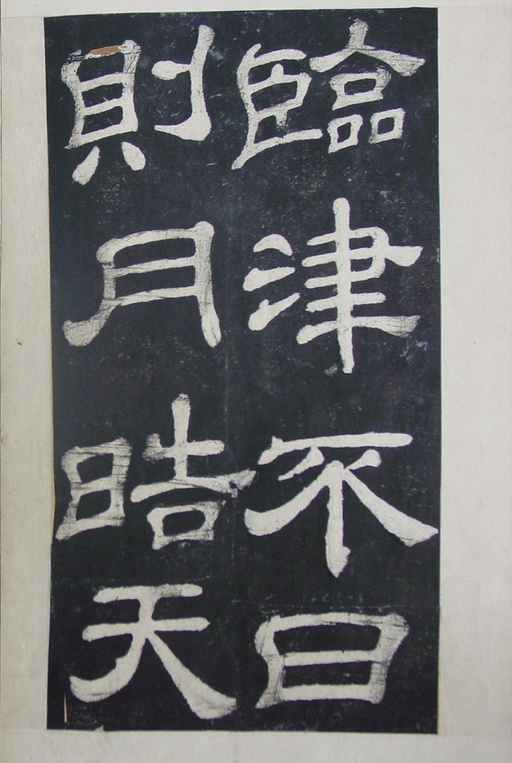 臨津不日
則月晧天